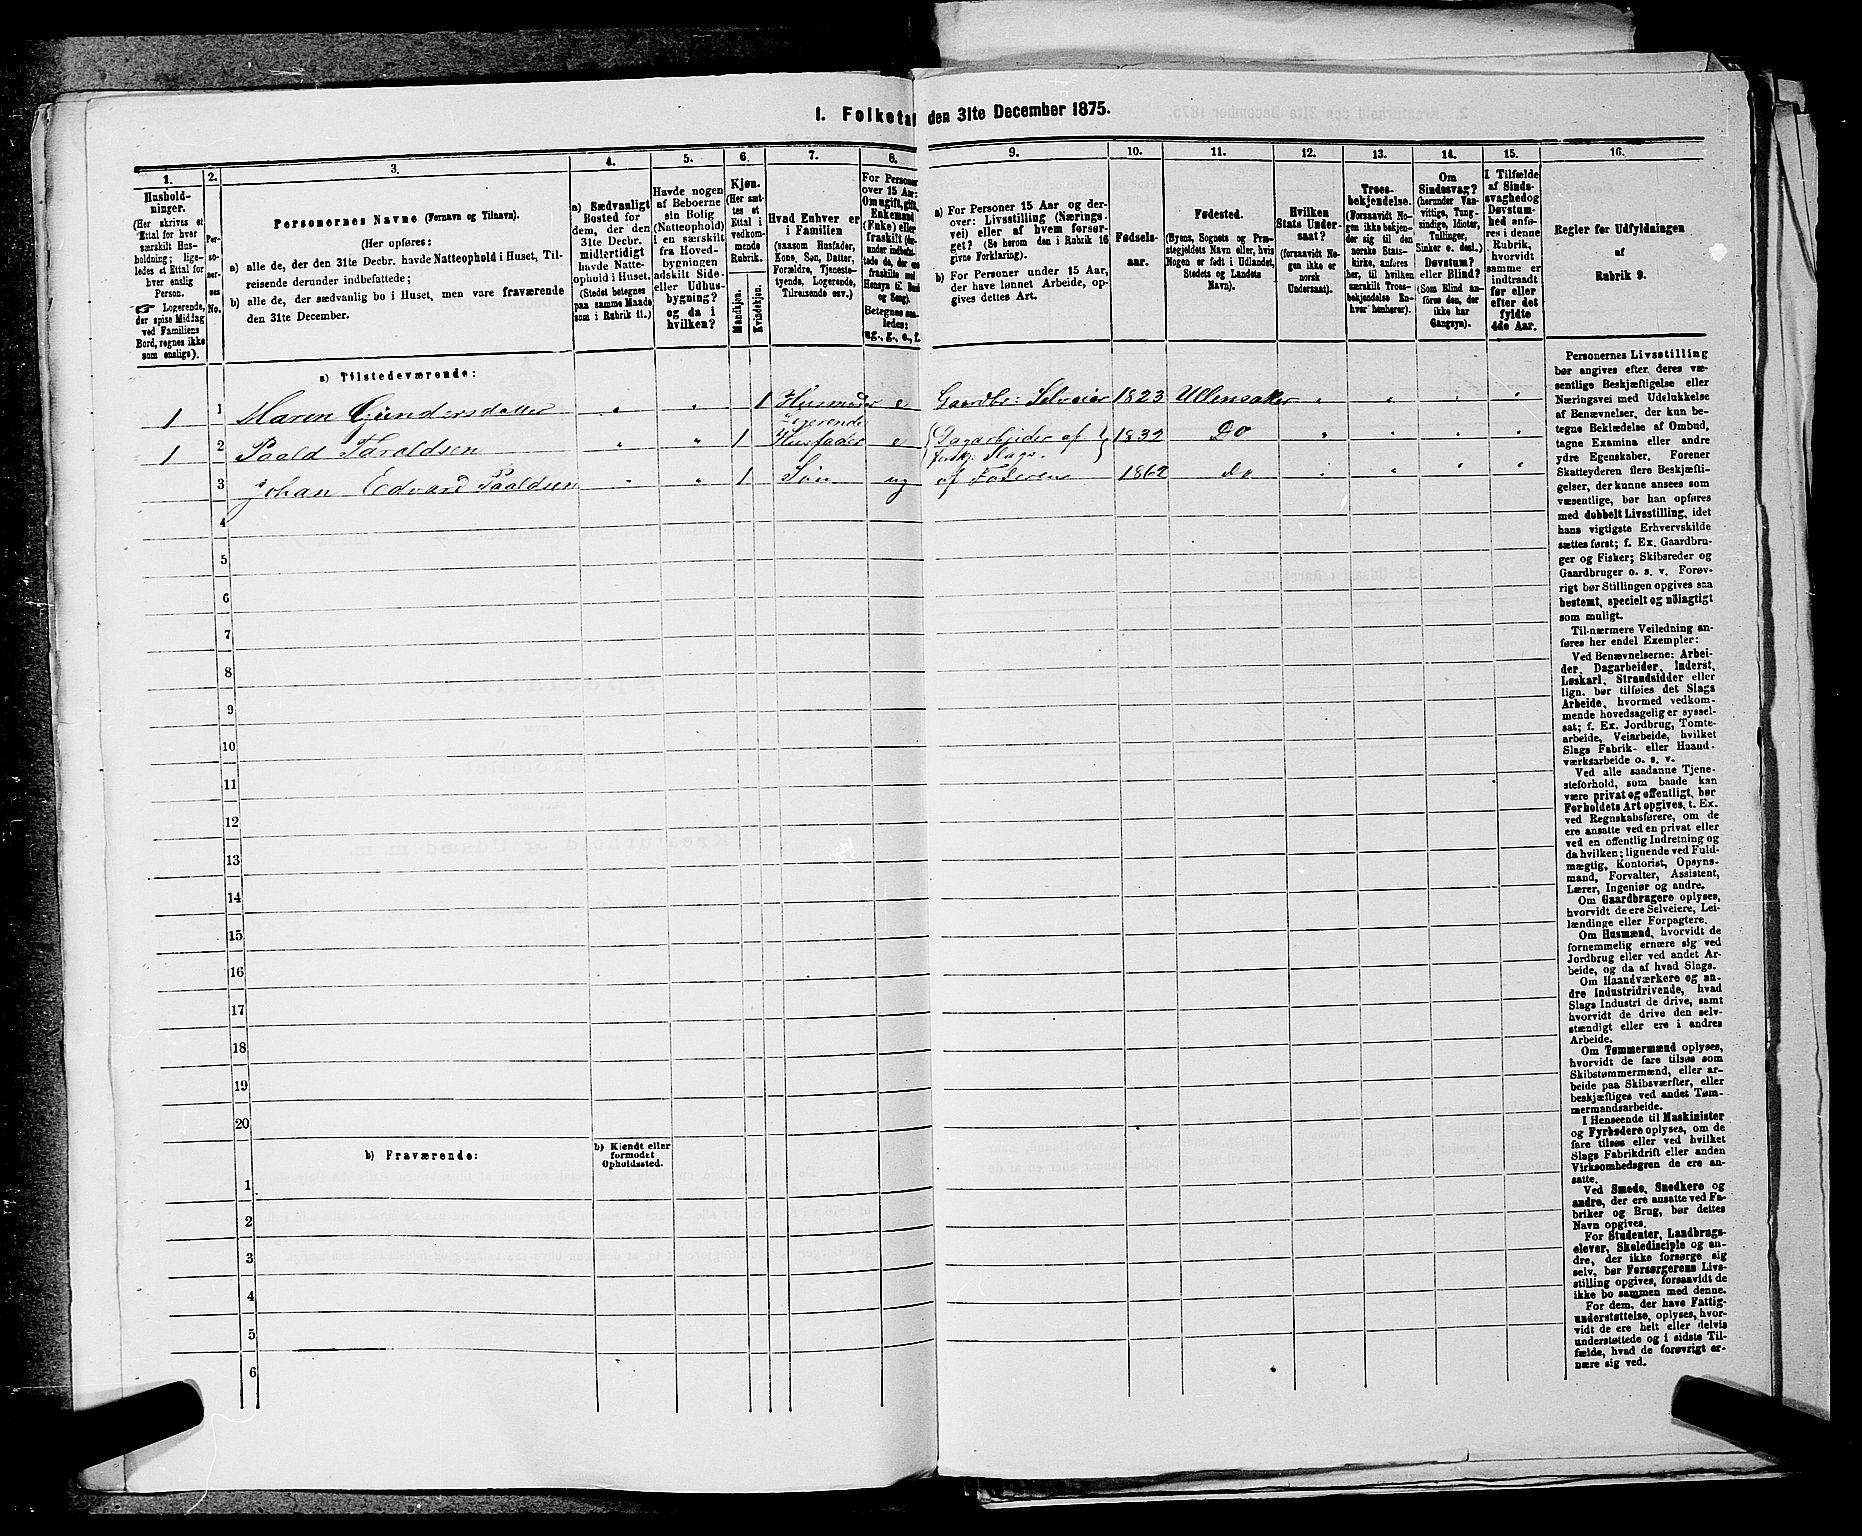 1. Folketal den 31te December 1875.
1.
Hushold-
ninger.
(Her skrives et
Ettal for hver
særskilt Hus-
holdning; lige-
ledes et Ettal for
hver enslig
Person.
☞ Logerende,
der spise Middag
ved Familiens
Bord, regnes ikke
som enslige).
2.
Per-
so-
ner-
nes
No.
3.
Personernes Navne (Fornavn og Tilnavn).
(Her opføres:
a) alle de, der den 31te Decbr. havde Natteophold i Huset, Til-
reisende derunder indbefattede;
b) alle de, der sædvanlig bo i Huset, men vare fraværende
den 31te December.
4.
a) Sædvanligt
Bosted for
dem, der den
31te Decbr.
midlertidigt
havde Natte-
ophold i Huset.
(Stedet betegnes
paa samme Maade
som i Rubrik 11.)
5.
Havde nogen
af Beboerne
sin Bolig
(Natteophold)
i en særskilt
fra Hoved-
bygningen
adskilt Side-
eller Udhus-
bygning?
og da i
hvilken?
6.
Kjøn.
(Her sæt-
tes et
Ettal i
vedkom-
mende
Rubrik.
Mandkjøn.
Kvindekjøn.
7.
Hvad Enhver er
i Familien
(saasom Husfader,
Kone, Søn, Datter,
Forældre, Tjeneste-
tyende, Logerende,
Tilreisende osv.)
8.
For Personer
over 15 Aar:
Om ugift, gift,
Enkemand
(Enke) eller
fraskilt
Betegnes saa-
ledes:
ug., g., e., f.
9.
a) For Personer 15 Aar og der-
over: Livsstilling (Nærings-
vei) eller af hvem forsør-
get? (Se herom den i Rubrik 16
givne Forklaring).
b) For Personer under 15 Aar,
der have lønnet Arbeide, op-
gives dettes Art.
10.
Fødsels-
aar.
11.
Fødested.
(Byens, Sognets og Præ-
stegjeldets Navn eller, hvis
Nogen er født i Udlandet,
Stedets og Landets
Navn).
12.
Hvilken
Stats Under-
saat?
(forsaavidt No-
gen ikke er
norsk
Undersaat).
13.
Troes-
bekjendelse.
(Forsaavidt No-
gen ikke bekjen-
der sig til den
norske Stats-
kirke, anføres
her, til hvilken
særskilt Troes-
bekjendelse En-
hver henhører).
14.
Om
Sindssvag?
(herunder Van-
vittige, Tung-
sindige, Idioter,
Tullinger,
Sinker o. desl.)
Døvstum?
eller Blind?
(Som Blind an-
føres den, der
ikke har
Gangsyn).
15.
I Tilfælde
af Sinds-
svaghed og
Døvstum-
hed anfø-
res i denne
Rubrik,
hvorvidt
samme er
indtraadt
før eller
efter det
fyldte
4de Aar.
16.
Regler for Udfyldningen
af
Rubrik 9.
a) Tilstedeværende:
1 1 Maren Gundersdatter " " 1 Husmoder e Gaardbr: Selveier 1823 Ullensaker " " " "
Logerende
1 2 Paald Taraldsen " " 1 Husfader e Dagarbeider af 1832 Do " " " "
forskj: Slags.
3 Johan Edvard Paaldsen " " 1 Søn ug af Faderen 1862 do " " " "
4
5
6
7
8
9
10
11
12
13
14
15
16
17
18
19
20
b) Fraværende:
b) Kjendt eller
formodet
Opholdssted.
1
2
3
4
5
6
Personernes Livsstilling
bør angives efter deres væ-
sentlige Beskjæftigelse eller
Næringsvei med Udelukkelse
af Benævnelser, der kun be-
tegne Beklædelse af Ombud,
tagne Examina eller andre
ydre Egenskaber. Forener
Skatteyderen flere Beskjæfti-
gelser, der kunne ansees som
væsentlige, bør han opføres
med dobbelt Livsstilling, idet
hans vigtigste Erhvervskilde
sættes først; f. Ex. Gaardbru-
ger og Fisker; Skibsreder og
Gaardbruger o. s. v. Forøv-
rigt bør Stillingen opgives saa
bestemt, specielt og nøiagtigt
som muligt.
Til nærmere Veiledning an-
føres her endel Exempler:
Ved Benævnelserne: Arbei-
der, Dagarbeider, Inderst,
Løskarl, Strandsidder eller
lign. bør tilføies det Slags
Arbeide, hvormed vedkom-
mende hovedsagelig er syssel-
sat; f. Ex. Jordbrug, Tomte-
arbeide, Veiarbeide, hvilket
Slags Fabrik- eller Haand-
værksarbeide o. s. v.
Ved alle saadanne Tjene-
steforhold, som baade kan
være privat og offentligt, bør
Forholdets Art opgives, t. Ex.
ved Regnskabsførere, om de
ere ansatte ved en privat eller
ved en offentlig Indretning og
da hvilken; lignende ved Fuld-
mægtig, Kontorist, Opsyns-
mand, Forvalter, Assistent,
Lærer, Ingeniør og andre.
Om Gaardbrugere oplyses,
hvorvidt de ere Selveiere, Lei-
lændinge eller Forpagtere.
Om Husmænd, hvorvidt de
fornemmelig ernære sig ved
Jordbrug eller ved andet Ar-
beide, og da af hvad Slags.
Om Haandværkere og an-
dre Industridrivende, hvad
Slags Industri de drive, samt
hvorvidt de drive den selv-
stændigt eller ere i andres
Arbeide.
Om Tømmermænd oplyses,
hvorvidt de fare tilsøs som
Skibstømmermænd, eller ar-
beide paa Skibsværfter, eller
beskjæftiges ved andet Tøm-
mermandsarbeide.
I Henseende til Maskinister
og Fyrbødere oplyses, om de
fare tilsøs eller ved hvilket
Slags Fabrikdrift eller anden
Virksomhedsgren de ere an-
satte.
Ved Smede, Snedkere og
andre, der ere ansatte ved Fa-
briker og Brug, bør dettes
Navn opgives.
For Studenter, Landbrugs-
elever, Skoledisciple og an-
dre, der ikke forsørge sig
selv, bør Forsørgerens Livs-
stilling opgives, forsaavidt de
ikke bo sammen med denne.
For dem, der have Fattig-
understøttelse, oplyses, hvor-
vidt de ere helt eller delvis
understøttede og i sidste Til-
fælde, hvad de forøvrigt er-
nære sig ved.